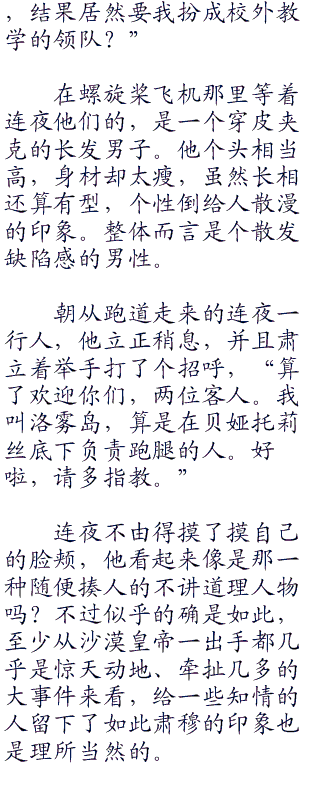 ，结果居然要我扮成校外教
学的领队？”
在螺旋桨飞机那里等着
连夜他们的，是一个穿皮夹
克的长发男子。他个头相当
高，身材却太瘦，虽然长相
还算有型，个性倒给人散漫
的印象。整体而言是个散发
缺陷感的男性。
朝从跑道走来的连夜一
行人，他立正稍息，并且肃
立着举手打了个招呼，“算
了欢迎你们，两位客人。我
叫洛雾岛，算是在贝娅托莉
丝底下负责跑腿的人。好
啦，请多指教。”
连夜不由得摸了摸自己
的脸颊，他看起来像是那一
种随便揍人的不讲道理人物
吗？不过似乎的确是如此，
至少从沙漠皇帝一出手都几
乎是惊天动地、牵扯几多的
大事件来看，给一些知情的
人留下了如此肃穆的印象也
是理所当然的。